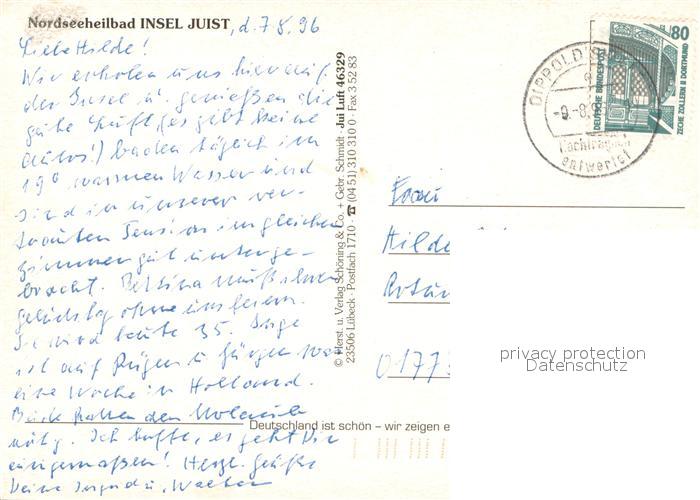 Nordseeheilbad INSEL JUIST, d. 7.8.96
Liebe Hilde!
Wir erholen uns hier auf
der Insel u. genießen die
gute Luft, (es gibt keine
Autos!) baden täglich im
19° warmen Wasser und
sind in unserer ver-
trauten Pension im gleichen
Zimmer gut unterge-
bracht. Bettina muß ihren
Geburtstag ohne uns feiern.
Sie wird heute 35. Inge
ist auf Rügen u. Jürgen war
eine Woche in Holland.
Beide hatten den
nötig. Ich hoffe, es geht Dir
einigermaßen! Herzl. Grüße
Deine u. Walter
© Herst. u. Verlag Schöning & Co. + Gebr. Schmidt · Jui Luft 46329
23506 Lübeck · Postfach 1710 · ☎ (04 51) 310 310 0 · Fax 3 52 83
Deutschland ist schön – wir zeigen e
80
DEUTSCHE BUNDESPOST
ZECHE ZOLLERN II DORTMUND
DIPPOLDIS
-9.-8.9
Nachträglich
entwertet
Frau
Hilde
0177
privacy protection
Datenschutz